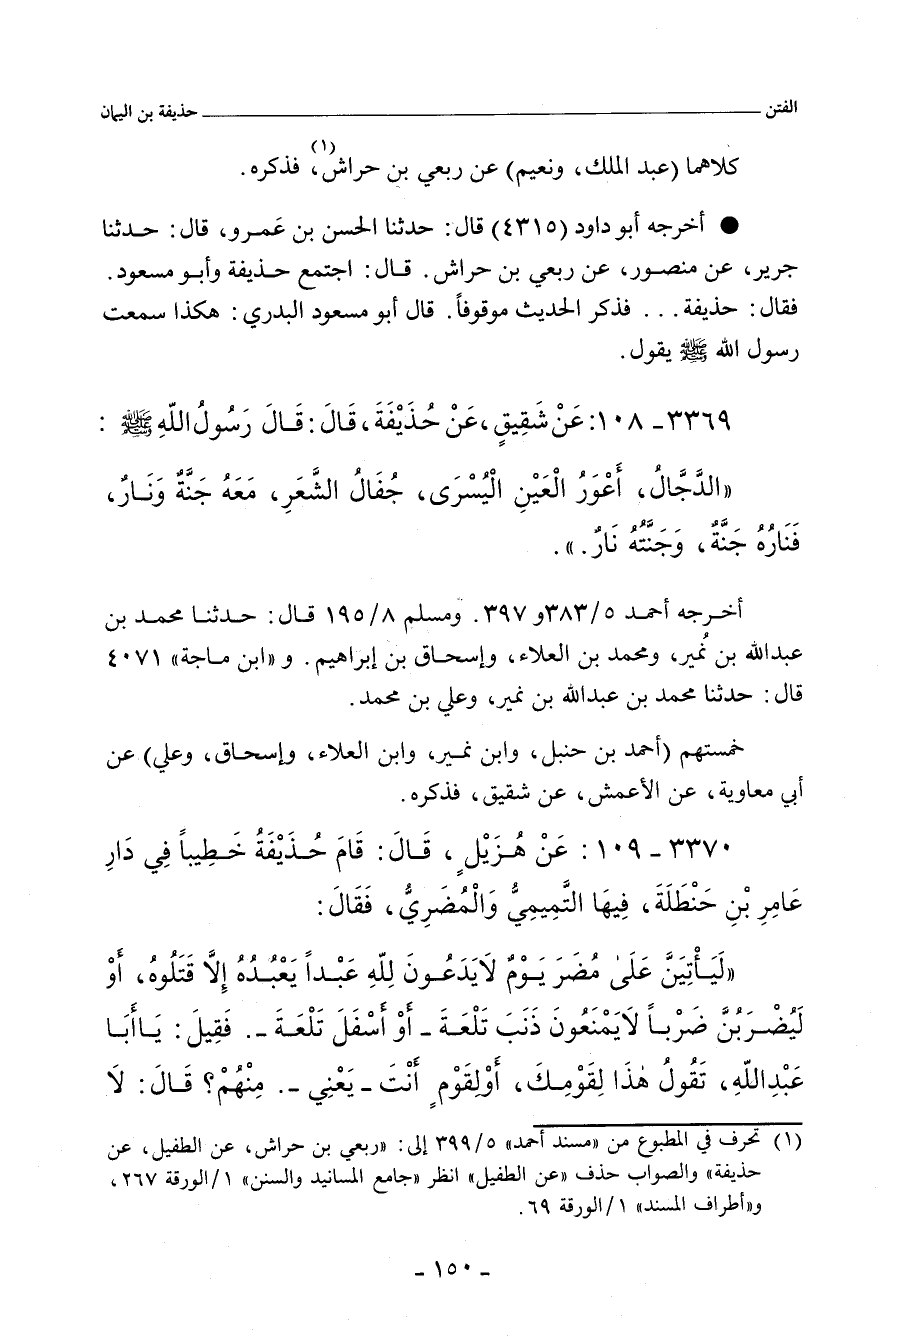 الفتن ــــــــــــــــ حذيفة بن اليمان
كلاهما (عبد الملك، ونعيم) عن ربعي بن حراش(١)، فذكره.
● أخرجه أبو داود (٤٣١٥) قال: حدثنا الحسن بن عمرو، قال: حدثنا
جرير، عن منصور، عن ربعي بن حراش. قال: اجتمع حذيفة وأبو مسعود.
فقال: حذيفة... فذكر الحديث موقوفاً. قال أبو مسعود البدري: هكذا سمعت
رسول الله ﷺ يقول.
٣٣٦٩ـ ١٠٨: عَنْ شَقِيقٍ، عَنْ حُذَيْفَةَ، قَالَ: قَالَ رَسُولُ اللهِ ﷺ :
«الدَّجَّالُ، أَعْوَرُ الْعَيْنِ الْيُسْرَى، جُفَالُ الشَّعَرِ، مَعَهُ جَنَّةٌ وَنَارٌ،
فَنَارُهُ جَنَّةٌ، وَجَنَّتُهُ نَارٌ.».
أخرجه أحمد ٣٨٣/٥ و٣٩٧. ومسلم ١٩٥/٨ قال: حدثنا محمد بن
عبدالله بن نُمير، ومحمد بن العلاء، وإسحاق بن إبراهيم. و «ابن ماجة» ٤٠٧١
قال: حدثنا محمد بن عبدالله بن نمير، وعلي بن محمد.
خمستهم (أحمد بن حنبل، وابن نمير، وابن العلاء، وإسحاق، وعلي) عن
أبي معاوية، عن الأعمش، عن شقيق، فذكره.
٣٣٧٠ـ ١٠٩: عَنْ هُزَيْلٍ، قَالَ: قَامَ حُذَيْفَةُ خَطِيباً فِي دَارِ
عَامِرِ بْنِ حَنْظَلَةَ، فِيهَا التَّمِيمِيُّ وَالْمُضَرِيُّ، فَقَالَ:
«لَيَأْتِيَنَّ عَلَىٰ مُضَرَ يَوْمٌ لَايَدَعُونَ لِلّهِ عَبْداً يَعْبُدُهُ إِلَّا قَتَلُوهُ، أَوْ
لَيُضْرَبُنَّ ضَرْباً لَايَمْنَعُونَ ذَنَبَ تَلْعَةَ ـ أَوْ أَسْفَلَ تَلْعَةَ ـ. فَقِيلَ: يَاأَبَا
عَبْدِاللّهِ، تَقُولُ هٰذَا لِقَوْمِكَ، أَوْلِقَوْمٍ أَنْتَ ـ يَعْنِي ـ. مِنْهُمْ؟ قَالَ: لَا
(١) تحرف في المطبوع من «مسند أحمد» ٣٩٩/٥ إلى: «ربعي بن حراش، عن الطفيل، عن
حذيفة» والصواب حذف «عن الطفيل» انظر «جامع المسانيد والسنن» ١/الورقة ٢٦٧،
و«أطراف المسند» ١/الورقة ٦٩.
ـ ١٥٠ ـ